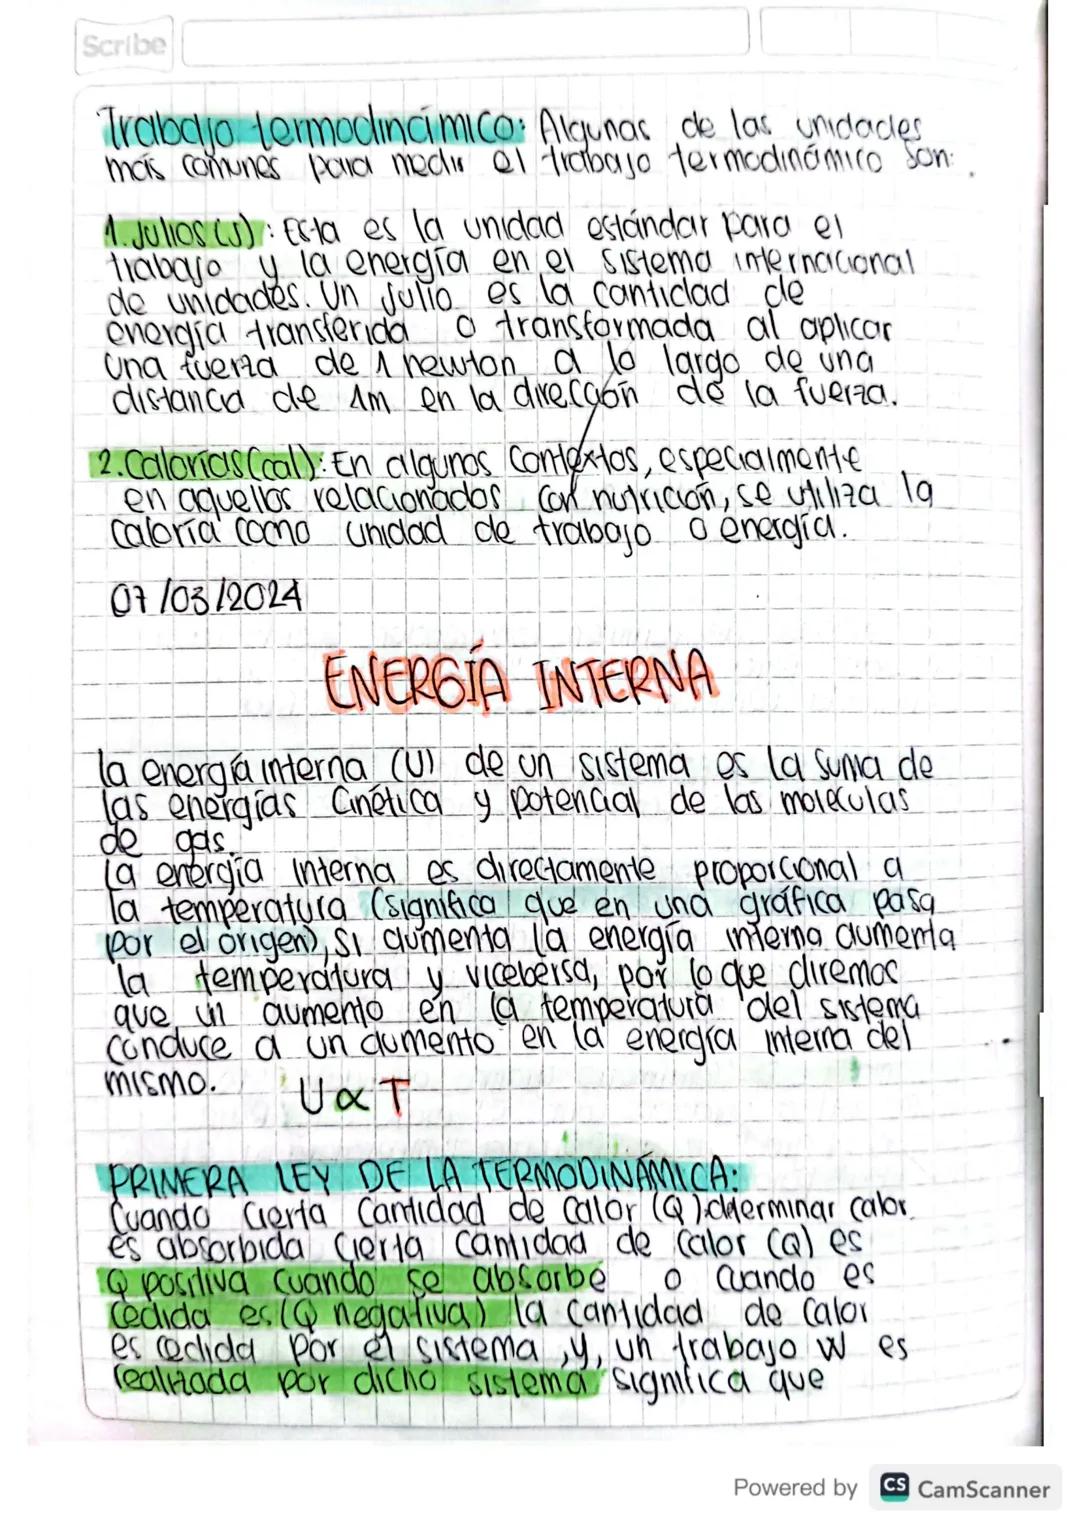 Scribe
Trabajo termodinámico: Algunas de las unidades
más comunes para medir el trabajo termodinámico son:
1. Julios (J): Esta es la unidad estándar para el
trabajo y la energía en el sistema internacional
de unidades. Un Julio es la cantidad de
energía transferida o transformada al aplicar
una fuerza de 1 newton a lo largo de una
distancia de 1m en la dirección de la fuerza.
2. Calorías (cal): En algunos contextos, especialmente
en aquellos relacionados con nutrición, se utiliza la
caloría como unidad de trabajo o energía.
07/03/2024
ENERGÍA INTERNA
la energía interna (U) de un sistema es la suma de
las energías cinética y potencial de las moleculas
de gas.
La energía interna es directamente proporcional a
la temperatura (significa que en una gráfica pasa
por el origen), si aumenta la energía interna aumenta
la temperatura y vicebersa, por lo que diremos
que un aumento en la temperatura del sistema
conduce a un aumento en la energía interna del
mismo.
U ∝ T
PRIMERA LEY DE LA TERMODINÁMICA:
Cuando cierta cantidad de calor (Q) determinar calor
es absorbida cierta cantidad de calor (Q) es
Q positiva cuando se absorbe o cuando es
cedida es (Q negativa) la cantidad de calor
es cedida por el sistema, y, un trabajo W es
realizada por dicho sistema significa que
Powered by CS CamScanner